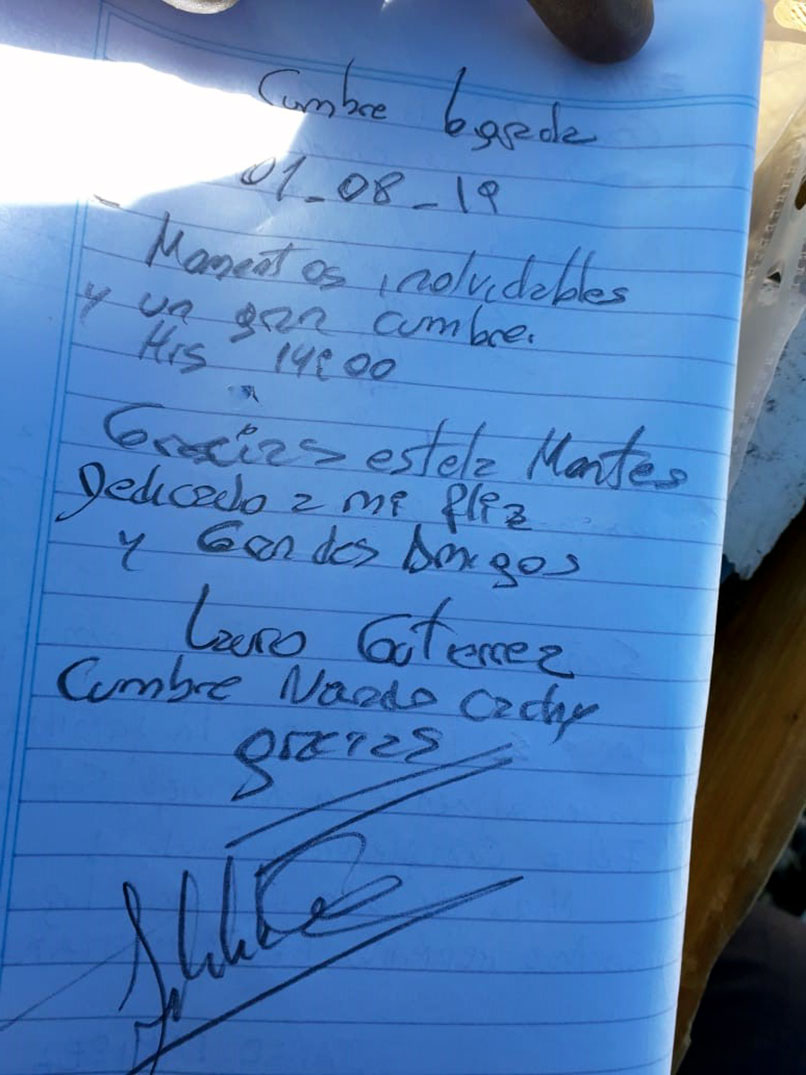 Cumbre
01-08-19
Momentos inolvidables
y un gran cumbre.
Hrs 14:00
Gracias estela Montes
Dedicado a mi
y Grandes Amigos
Lauro Guterrez
Cumbre Nardo
gracias